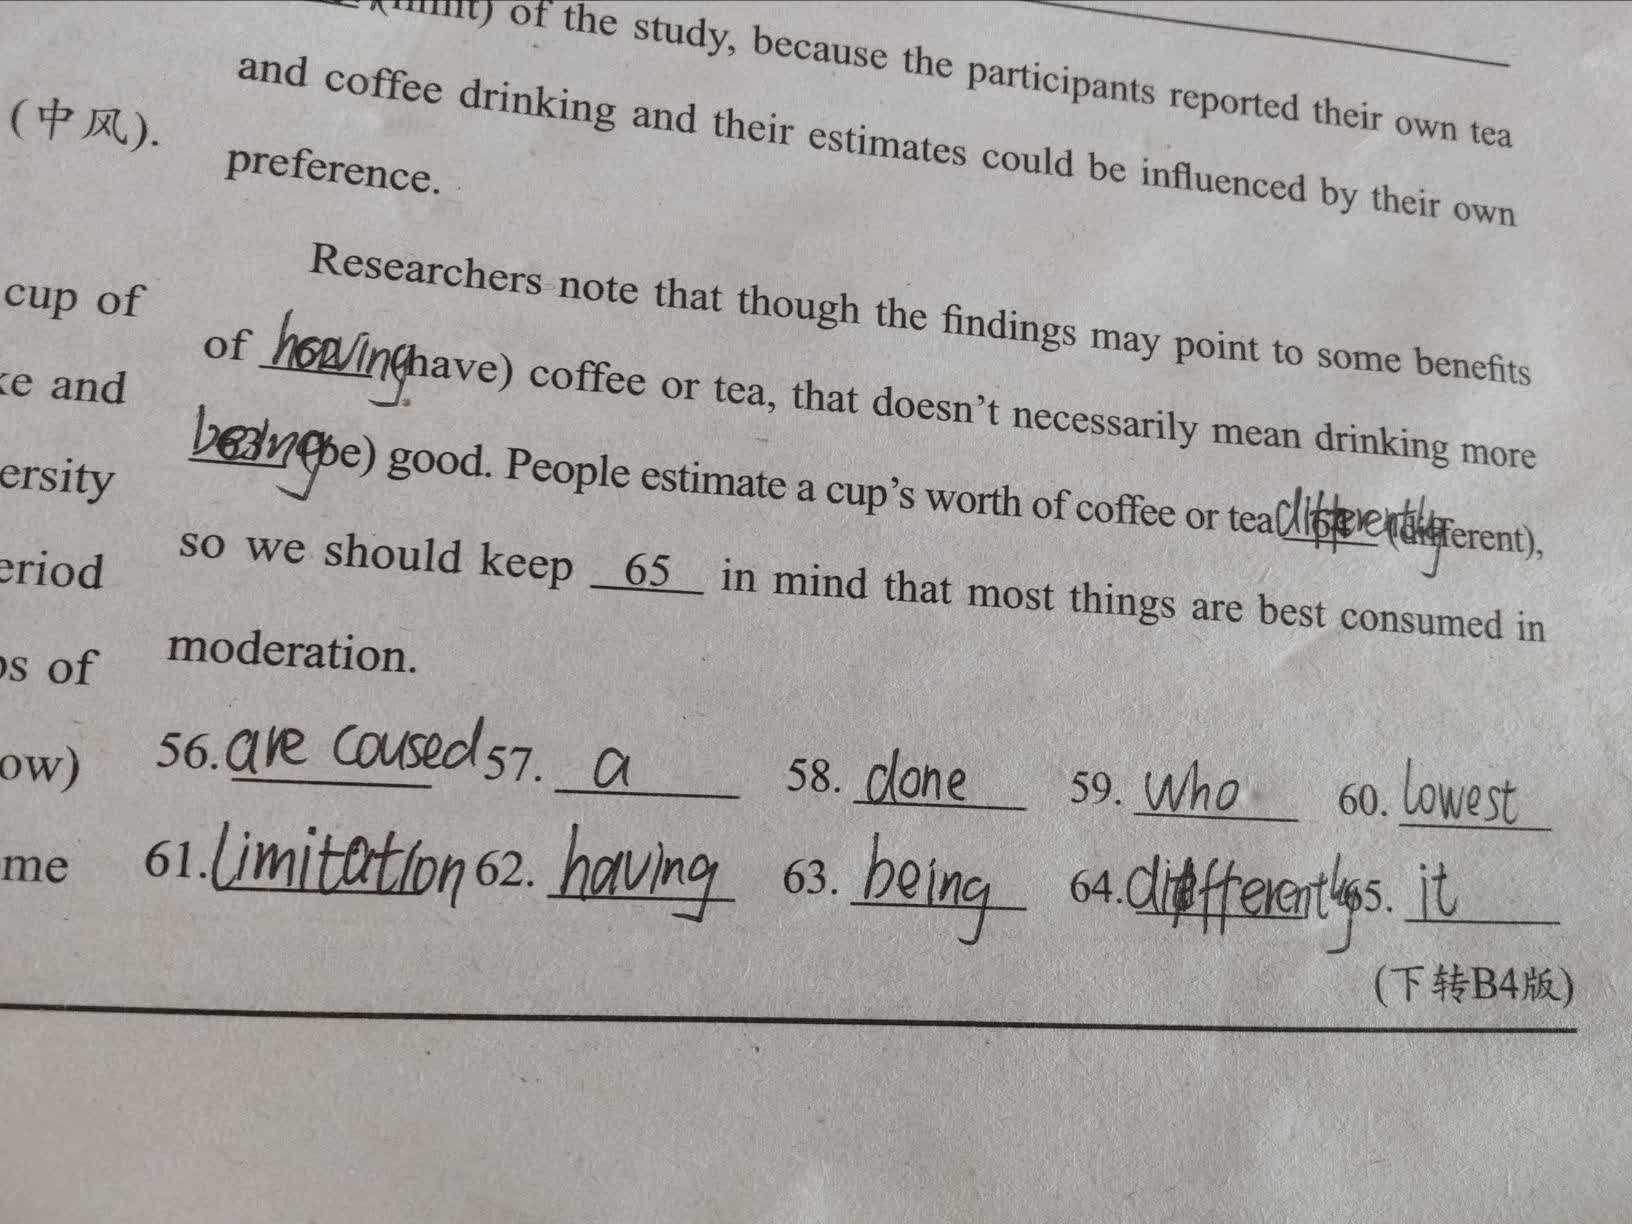 (limit) of the study, because the participants reported their own tea
and coffee drinking and their estimates could be influenced by their own
preference.
Researchers note that though the findings may point to some benefits
of having (have) coffee or tea, that doesn't necessarily mean drinking more
being (be) good. People estimate a cup's worth of coffee or tea differently (different),
so we should keep 65 in mind that most things are best consumed in
moderation.
(中风).
cup of
and
ersity
eriod
of
ow)
me
56. are caused 57. a 58. done 59. who 60. lowest
61. limitation 62. having 63. being 64. differently 65. it
(下转B4版)